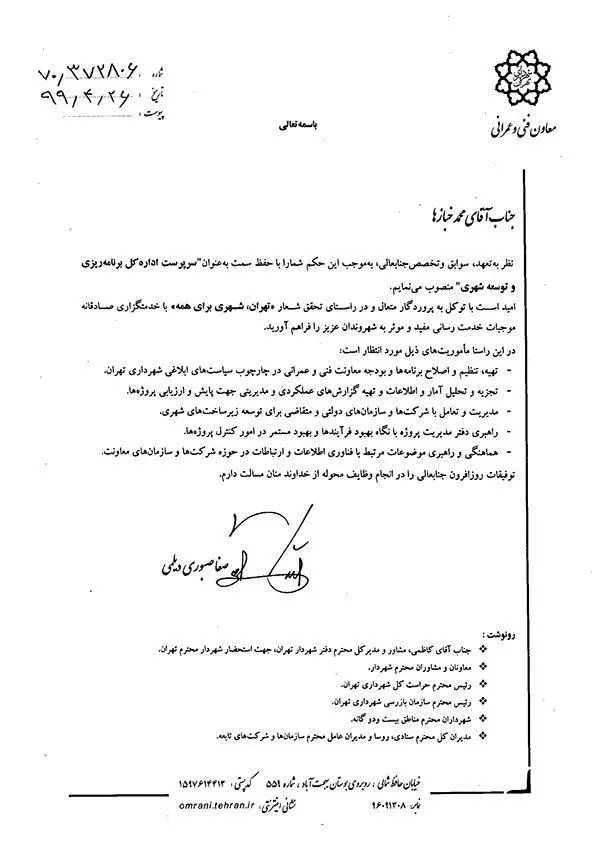 شماره : ۷۰/۳۷۲۸۰۶
تاریخ : ۹۹/۴/۲۶
پیوست :
معاون فنی و عمرانی
باسمه تعالی
جناب آقای محمد خبازها
نظر به‌تعهد، سوابق وتخصص‌جنابعالی، به‌موجب این حکم شمارا با حفظ سمت به‌عنوان"سرپرست اداره‌کل برنامه‌ریزی
و توسعه شهری" منصوب می‌نمایم.
امید است با توکل به پروردگار متعال و در راستای تحقق شعار «تهران، شهری برای همه» با خدمتگزاری صادقانه
موجبات خدمت رسانی مفید و موثر به شهروندان عزیز را فراهم آورید.
در این راستا مأموریت‌های ذیل مورد انتظار است:
- تهیه، تنظیم و اصلاح برنامه‌ها و بودجه معاونت فنی و عمرانی در چارچوب سیاست‌های ابلاغی شهرداری تهران.
- تجزیه و تحلیل آمار و اطلاعات و تهیه گزارش‌های عملکردی و مدیریتی جهت پایش و ارزیابی پروژه‌ها.
- مدیریت و تعامل با شرکت‌ها و سازمان‌های دولتی و متقاضی برای توسعه زیرساخت‌های شهری.
- راهبری دفتر مدیریت پروژه با نگاه بهبود فرآیندها و بهبود مستمر در امور کنترل پروژه‌ها.
- هماهنگی و راهبری موضوعات مرتبط با فناوری اطلاعات و ارتباطات در حوزه شرکت‌ها و سازمان‌های معاونت.
توفیقات روزافرون جنابعالی را در انجام وظایف محوله از خداوند منان مسالت دارم.
صفا صبوری دیلمی
رونوشت :
❖ جناب آقای کاظمی، مشاور و مدیرکل محترم دفتر شهردار تهران، جهت استحضار شهردار محترم تهران.
❖ معاونان و مشاوران محترم شهردار.
❖ رئیس محترم حراست کل شهرداری تهران.
❖ رئیس محترم سازمان بازرسی شهرداری تهران.
❖ شهرداران محترم مناطق بیست ودو گانه.
❖ مدیران کل محترم ستادی، روسا و مدیران عامل محترم سازمان‌ها و شرکت‌های تابعه.
خیابان حافظ شمالی ، روبروی بوستان بهجت آباد ، شماره ۵۵۹ کدپستی : ۱۵۹۷۶۱۴۴۱۳
نمابر: ۹۶۰۹۱۳۰۸ نشانی اینترنتی: omrani.tehran.ir